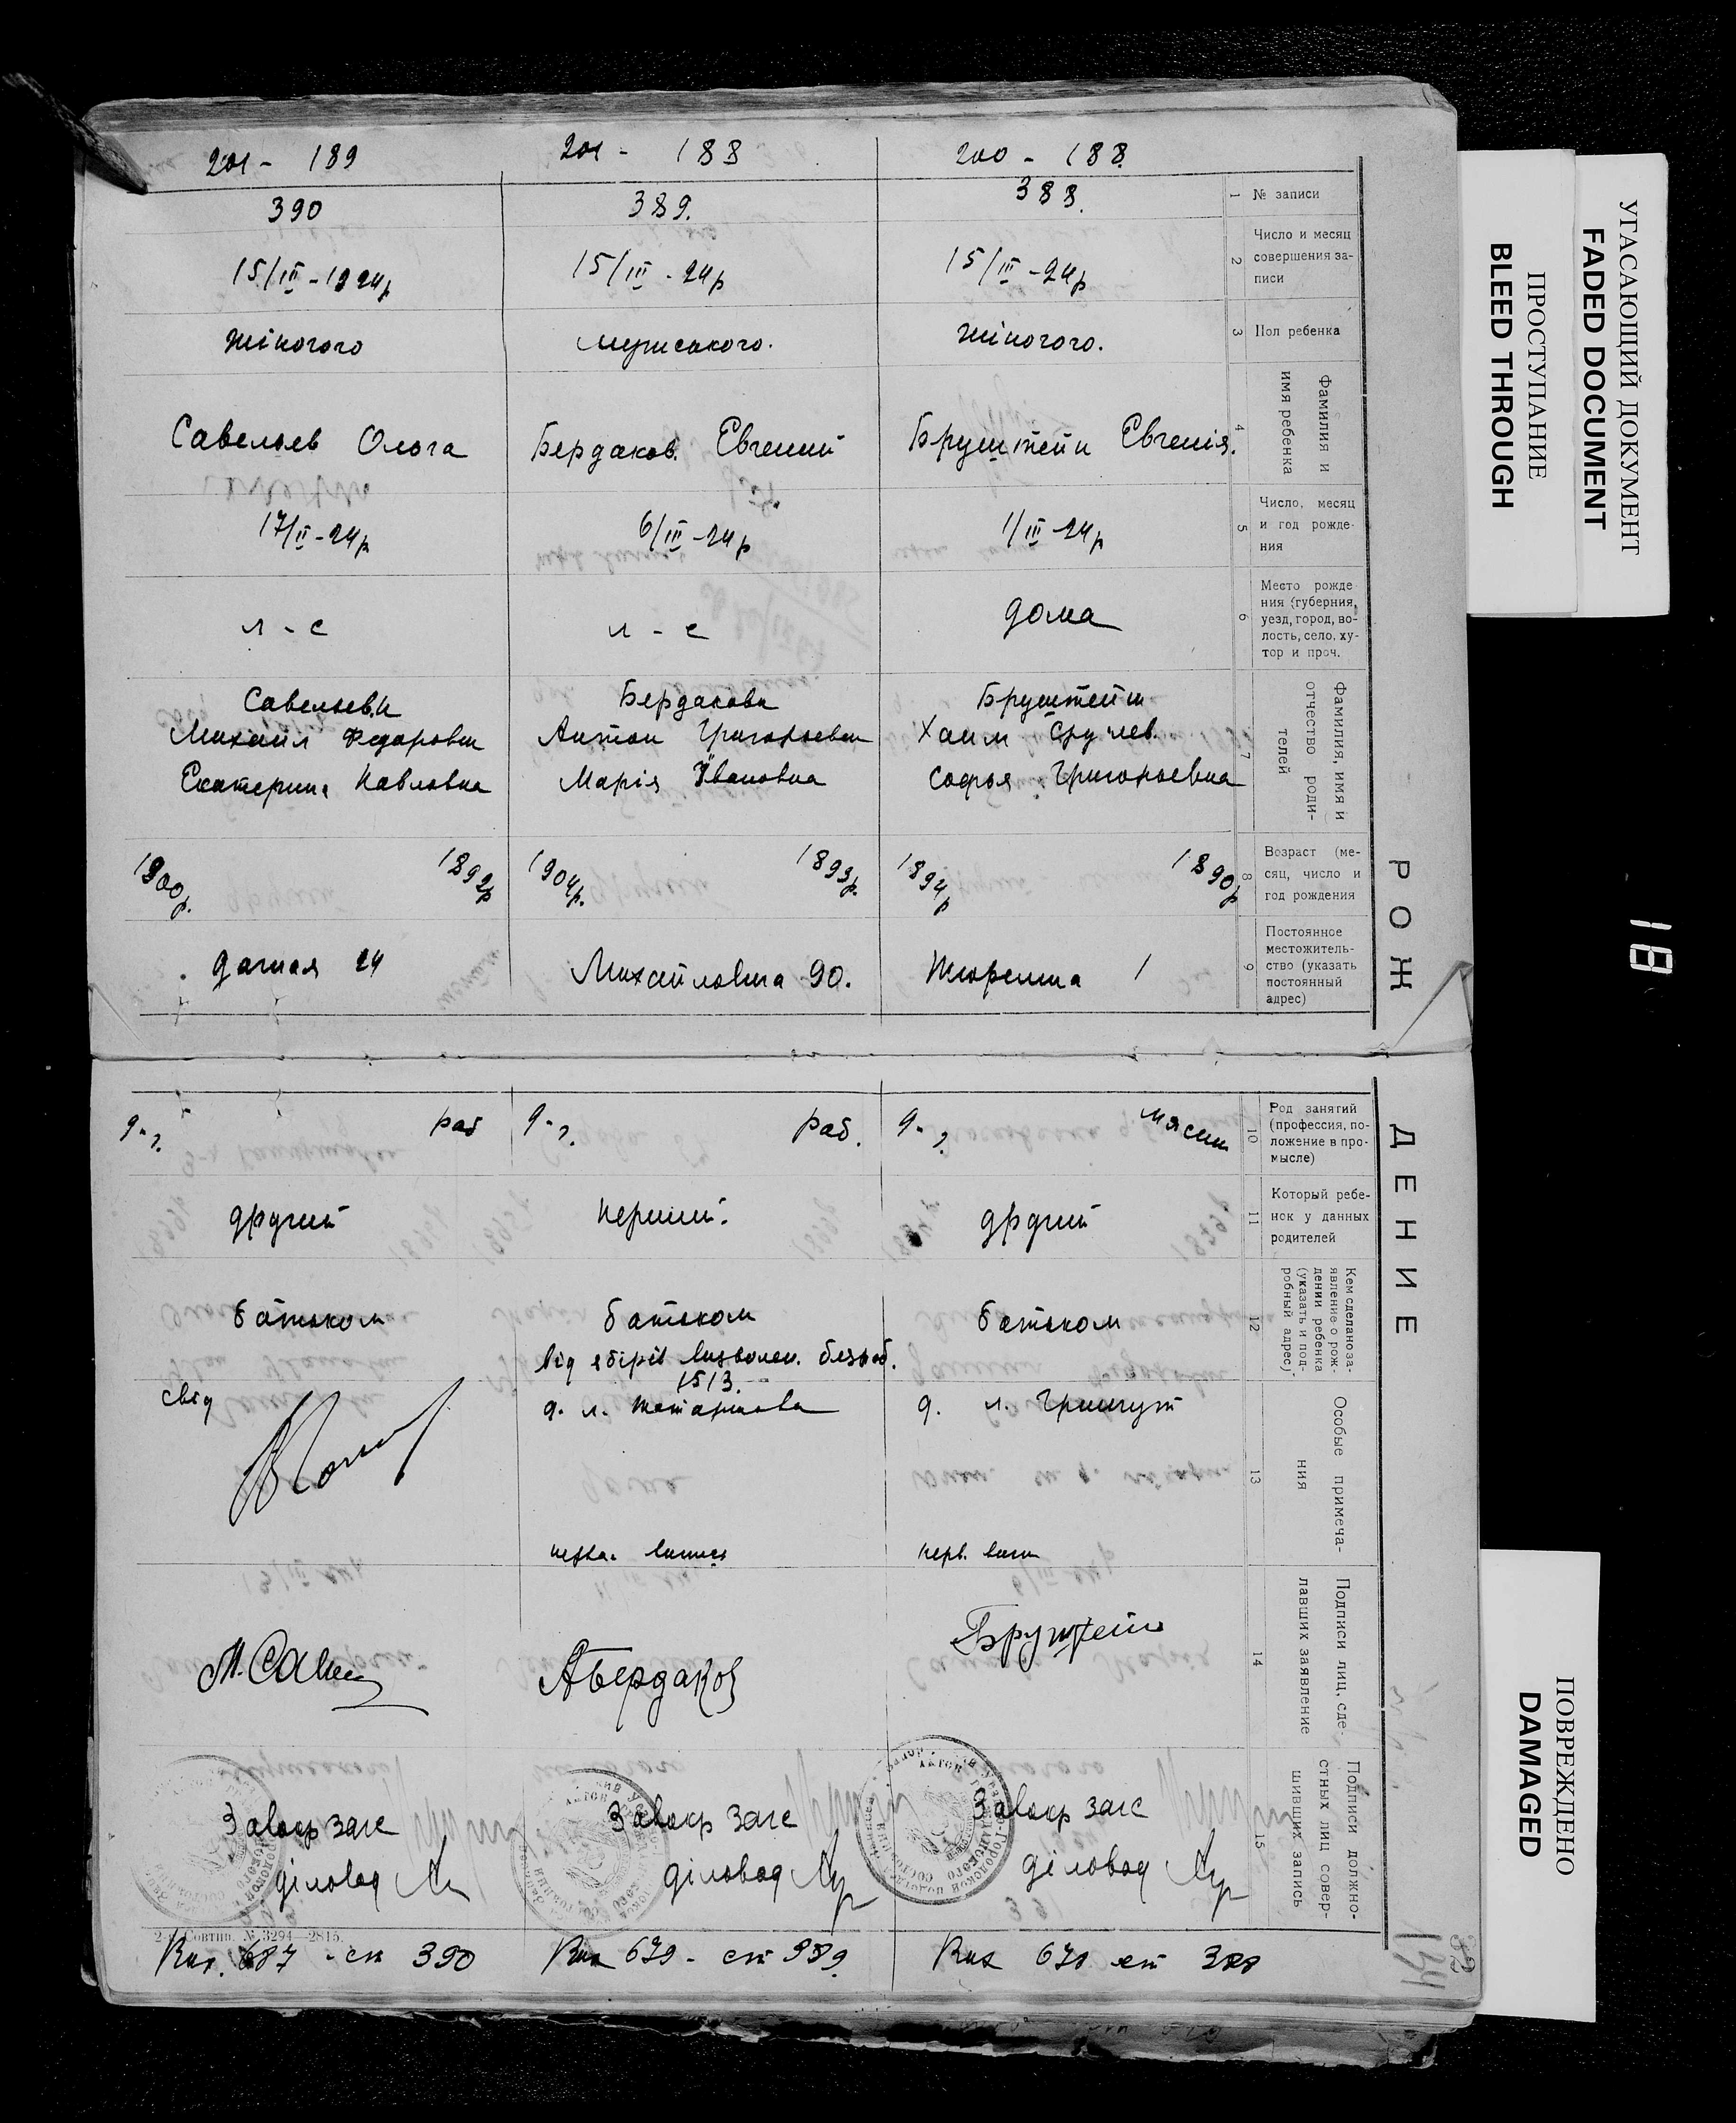 201 - 189
201 - 188
200 - 188.
390
389.
388.
1
№ записи
15/III - 1924р
15/III - 24р
15/III - 24р
2
Число и месяц
совершения за-
писи
жіночого
мужського.
жіночого.
3
Пол ребенка
Савельев Ольга
Бердаков. Евгений
Бруштейн Евгенія.
4
Фамилия и
имя ребенка
17/II - 24р
6/III - 24р
1/III - 24р
5
Число, месяц
и год рожде-
ния
л - с
л - с
дома
6
Место рожде-
ния (губерния,
уезд, город, во-
лость, село, ху-
тор и проч.
Савельев
Михаил Федорович
Екатерина Павловна
Бердакови
Антон Григорьевич
Марія Ивановна
Бруштейн
Хаим Срулев.
Софья Григорьевна
7
Фамилия, имя и
отчество роди-
телей
1900р.
1892р
1904р.
1893р.
1894р
1890р
8
Возраст (ме-
сяц, число и
год рождения
Дачная 24
Михайловка 90.
1
9
Постоянное
местожитель-
ство (указать
постоянный
адрес)
РОЖ
ДЕНИЕ
д-г.
раб
д-г.
раб.
д-г.
мясник
10
Род занятий
(профессия, по-
ложение в про-
мысле)
другий
перший.
другий
11
Который ребе-
нок у данных
родителей
батьком
батьком
від зборів визволен. безроб.
1513.
батьком
12
Кем сделано за-
явление о рож-
дении ребенка
(указать и под-
робный адрес)
свід
д. л.
д. л.
перв.
13
Особые примеча-
ния
М. Савел
АБердаков
Бруштейн
14
Подписи лиц, сде-
лавших заявление
Завокр загс
діловод
Завокр загс
діловод
Завокр загс
діловод
15
Подписи должно-
стных лиц совер-
шивших запись
2-я Совтип. № 3294—2815.
687 - ст 390
679 - ст 389.
678 ст 388
134
УГАСАЮЩИЙ ДОКУМЕНТ
FADED DOCUMENT
ПРОСТУПАНИЕ
BLEED THROUGH
18
ПОВРЕЖДЕНО
DAMAGED